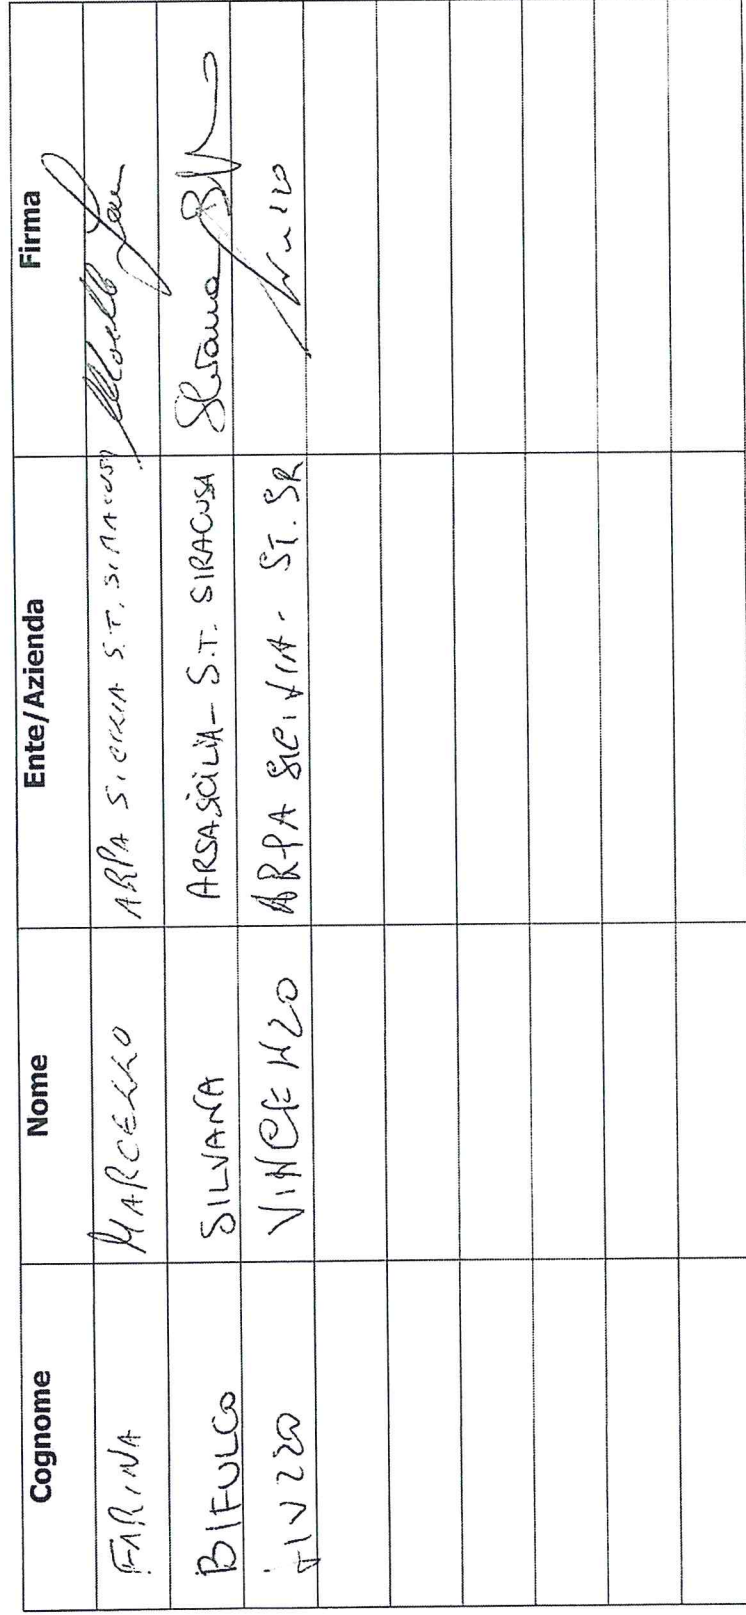 Cognome Nome Ente/Azienda Firma
FARINA MARCELLO ARPA SICILIA S.T. SIRACUSA
BIFULCO SILVANA ARSA SICILIA - S.T. SIRACUSA Silvana
VINCENZO ARPA SICILIA - ST. SR